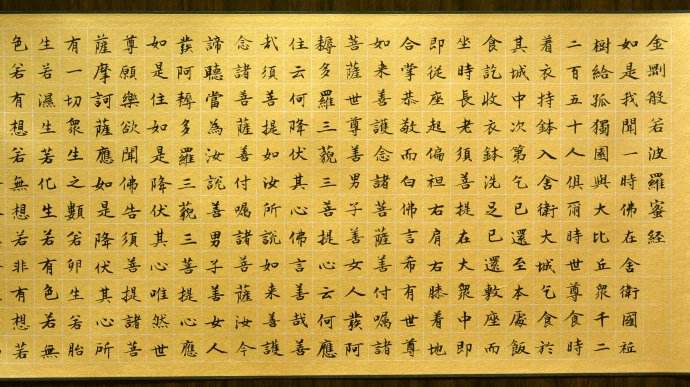 金剛般若波羅蜜經
如是我聞一時佛在舍衛國祇
樹給孤獨園與大比丘眾千二
二百五十人俱爾時世尊食時
着衣持鉢入舍衛大城乞食於
其城中次第乞已還至本處飯
食訖收衣鉢洗足已還敷座而
坐時長老須菩提在大眾中即
即從座起偏袒右肩右膝着地
合掌恭敬而白佛言希有世尊
如来善護念諸菩薩善付囑諸
菩薩世尊善男子善女人發阿
耨多羅三藐三菩提心云何應
住云何降伏其心佛言善哉善
哉須菩提如汝所說如来善護
念諸菩薩善付囑諸菩薩汝今
諦聽當為汝說善男子善女人
發阿耨多羅三藐三菩提心應
如是住如是降伏其心唯然世
尊願樂欲聞佛告須菩提諸菩
薩摩訶薩應如是降伏其心所
有一切眾生之類若卵生若胎
生若濕生若化生若有色若無
色若有想若無想若非有想若